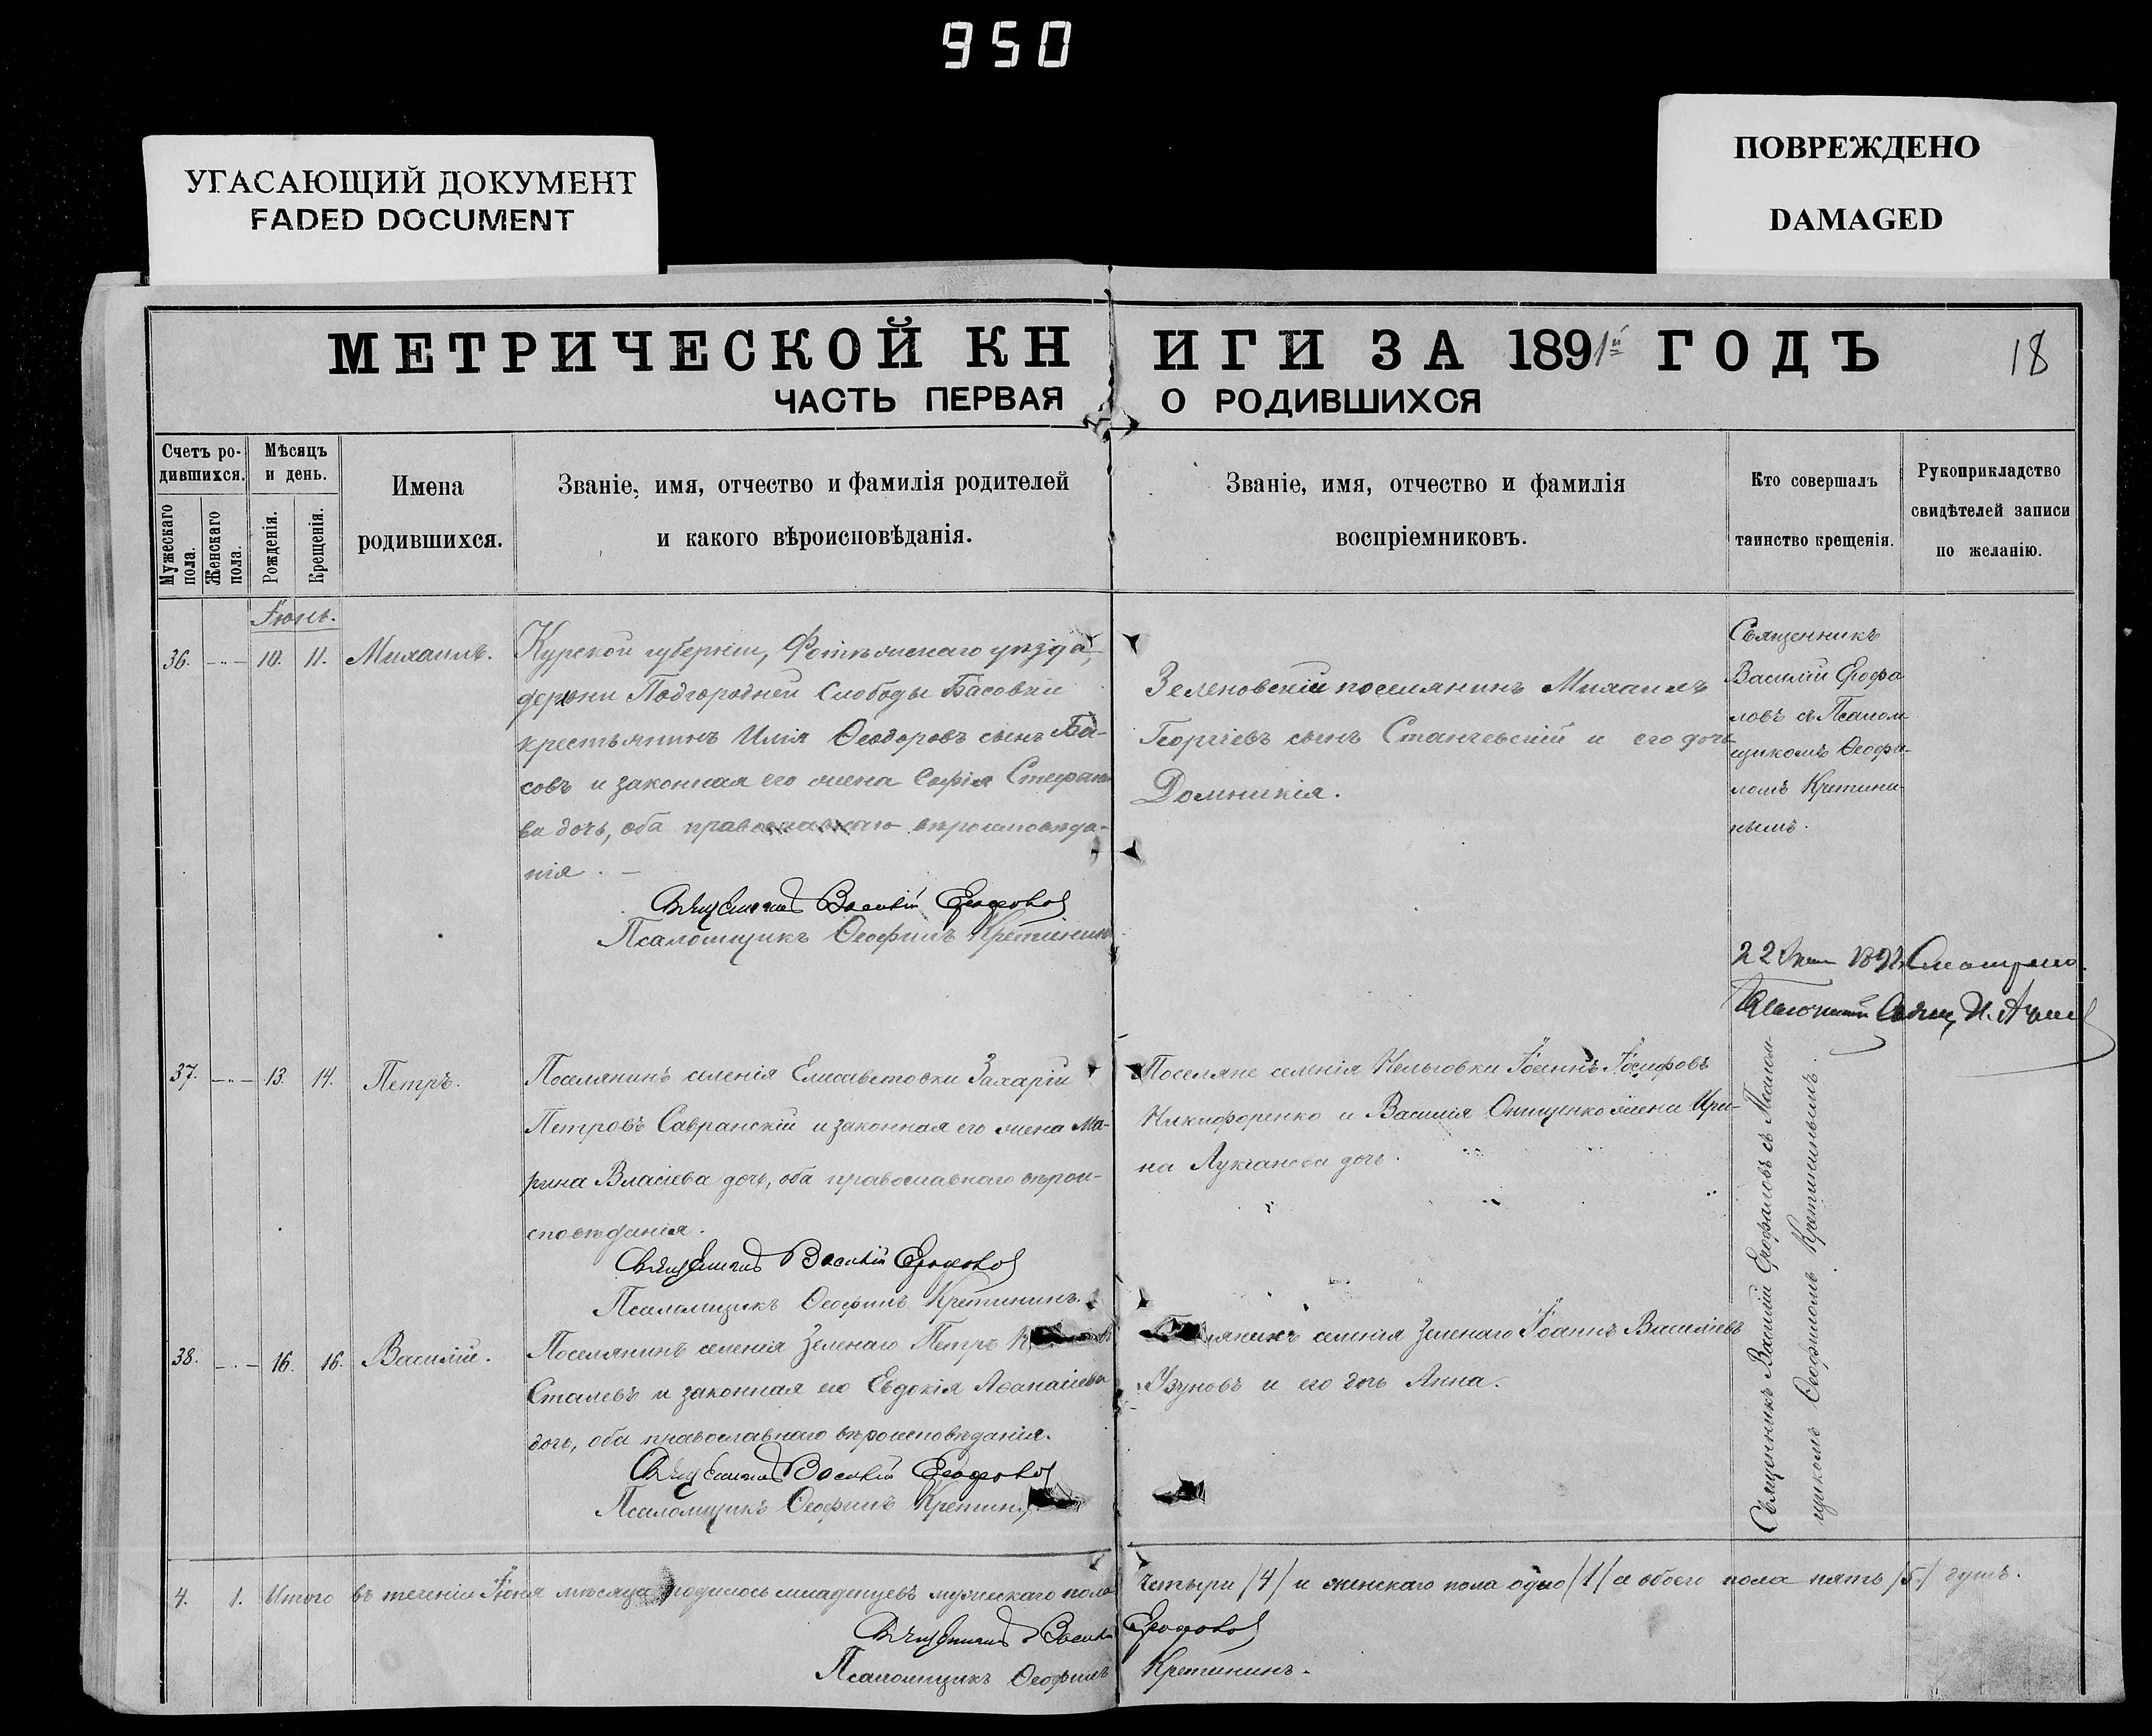 950
УГАСАЮЩИЙ ДОКУМЕНТ
FADED DOCUMENT
ПОВРЕЖДЕНО
DAMAGED
МЕТРИЧЕСКОЙ КНИГИ ЗА 1891й ГОДЪ
18
ЧАСТЬ ПЕРВАЯ О РОДИВШИХСЯ
Счетъ ро-
дившихся.
Мужескаго
пола.
Женскаго
пола.
Мѣсяцъ
и день.
Рожденія.
Крещенія.
Имена
родившихся.
Званіе, имя, отчество и фамилія родителей
и какого вѣроисповѣданія.
Званіе, имя, отчество и фамилія
воспріемниковъ.
Кто совершалъ
таинство крещенія.
Рукоприкладство
свидѣтелей записи
по желанію.
Іюнь.
36.
10.
11.
Михаилъ.
Курской губерніи, уѣзда,
Подгородней Слободы Басовки
крестьянинъ Илія Ѳеодоровъ сынъ Ба-
совъ и законная его жена Софія Стефано-
ва дочь, оба православнаго вѣроисповѣда-
нія. —
Священникъ Василій Ерофаловъ
Псаломщикъ Ѳеофилъ Кретининъ
Зеленовскій поселянинъ Михаилъ
Георгіевъ сынъ Станчевскій и его дочь
Домникія.
Священникъ
Василій Ерофа
ловъ съ Псалом-
щикомъ Ѳеофи-
ломъ Кретини-
нымъ.
22 Смотрено.
37.
13.
14.
Петръ.
Поселянинъ селенія Елисаветовки Захарій
Петровъ Савранскій и законная его жена Ма-
рина Власіева дочь, оба православнаго вѣрои-
сповѣданія.
Священникъ Василій Ерофаловъ
Псаломщикъ Ѳеофилъ Кретининъ.
Поселяне селенія Нельговки Іоаннъ Іосифовъ
Никифоренко и Василія Онищенко жена Ири-
на Лукіанова дочь.
38.
16.
16.
Василій.
Поселянинъ селенія Зеленаго Петръ
Сталевъ и законная его Евдокія Аѳанасіева
дочь, оба православнаго вѣроисповѣданія.
Священникъ Василій Ерофаловъ
Псаломщикъ Ѳеофилъ Кретин
селенія Зеленаго Іоаннъ Василіевъ
Узуновъ и его дочь Анна.
Священникъ Василій Ерофаловъ съ Псалом-
щикомъ Ѳеофиломъ Кретининымъ.
4. 1. Итого въ теченіи Іюня мѣсяца родилось младенцевъ мужескаго пола четыри /4/ и женскаго пола одно /1/ а обоего пола пять /5/ душъ.
Священникъ Василій Ерофаловъ
Псаломщикъ Ѳеофилъ Кретининъ.